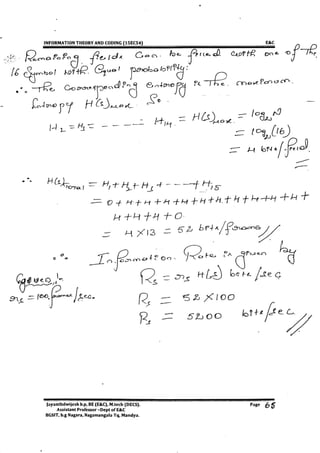 INFORMATION THEORY AND CODING (15EC54) E&C
Remaining fields Can be filled with one of The
16 Symbol with Equal probability.
∴ The Corresponding Entropy is The maximum
Entropy H(s)max. So
H2 = H3 = ---- H14 = H(s)max = log2 N
= log2(16)
= 4 bits/field.
∴ H(s)total = H1 + H2 + H3 + ---- + H15
= 0+4+4+4+4+4+4+4+4+4+4+
4+4+4+0
= 4×13 = 52 bits/frame //
∴ Information Rate is given by
Given, Rs = rs H(s) bits/sec
rs = 100 frames/sec. Rs = 52×100
Rs = 5200 bits/sec //
Jayanthdwijesh h.p, BE (E&C), M.tech (DECS). Page 65
Assistant Professor -Dept of E&C
BGSIT, b.g Nagara, Nagamangala Tq, Mandya.